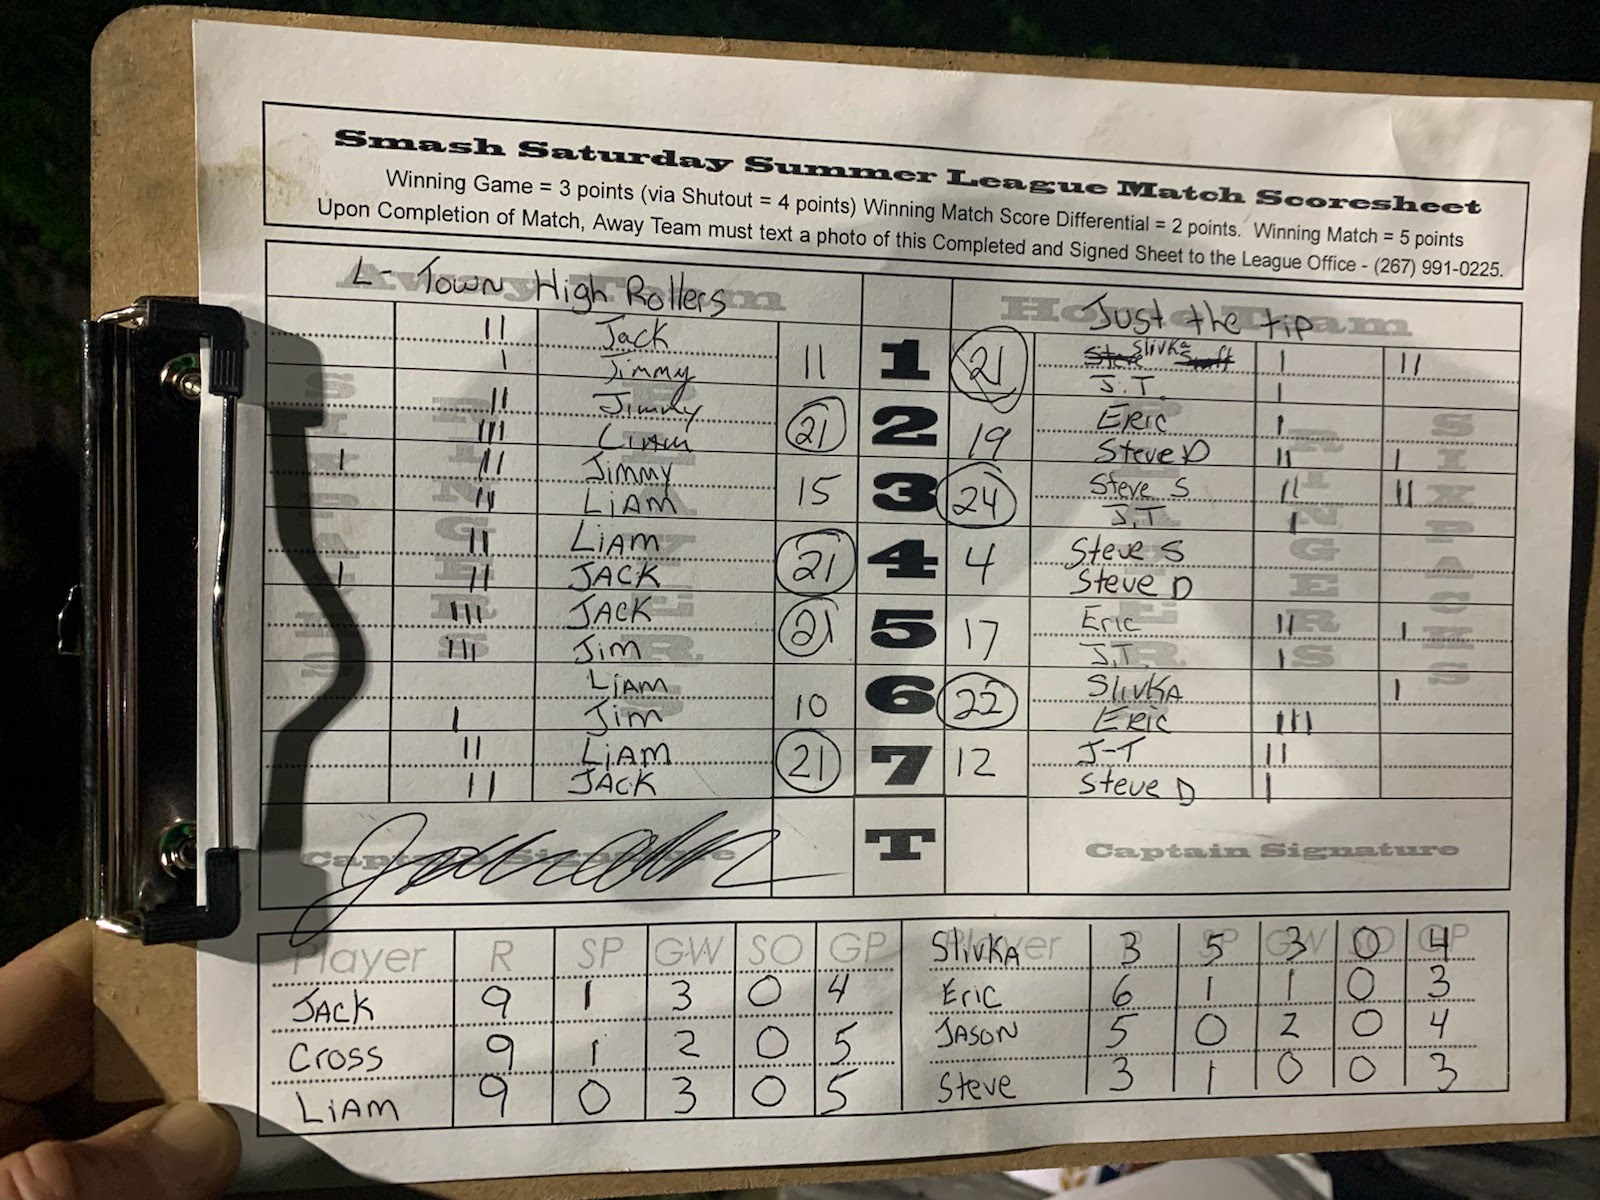 Smash Saturday Summer League Match Scoresheet
Winning Game = 3 points (via Shutout = 4 points) Winning Match Score Differential = 2 points. Winning Match = 5 points
Upon Completion of Match, Away Team must text a photo of this Completed and Signed Sheet to the League Office - (267) 991-0225.
Away Team L-Town High Rollers Home Team Just the tip
SIXPACKS RINGERS PLAYERS PLAYERS RINGERS SIXPACKS
II Jack 11 1 21 Slivka I II
I Jimmy J.T. I
II Jimmy 21 2 19 Eric I
III Liam Steve D II I
I II Jimmy 15 3 24 Steve S II II
II LiAM J.T I
II LiAM 21 4 4 Steve S
I II JACK Steve D
III JACK 21 5 17 Eric II I
III Jim J.T. I
LiAM 10 6 22 SlivKA I
I Jim Eric III
II LiAM 21 7 12 J-T II
II JACK Steve D I
Captain Signature T Captain Signature
Player R SP GW SO GP Player SlivKA 3 5 3 0 4
JACK 9 1 3 0 4 Eric 6 1 1 0 3
Cross 9 1 2 0 5 JASON 5 0 2 0 4
LiAM 9 0 3 0 5 Steve 3 1 0 0 3